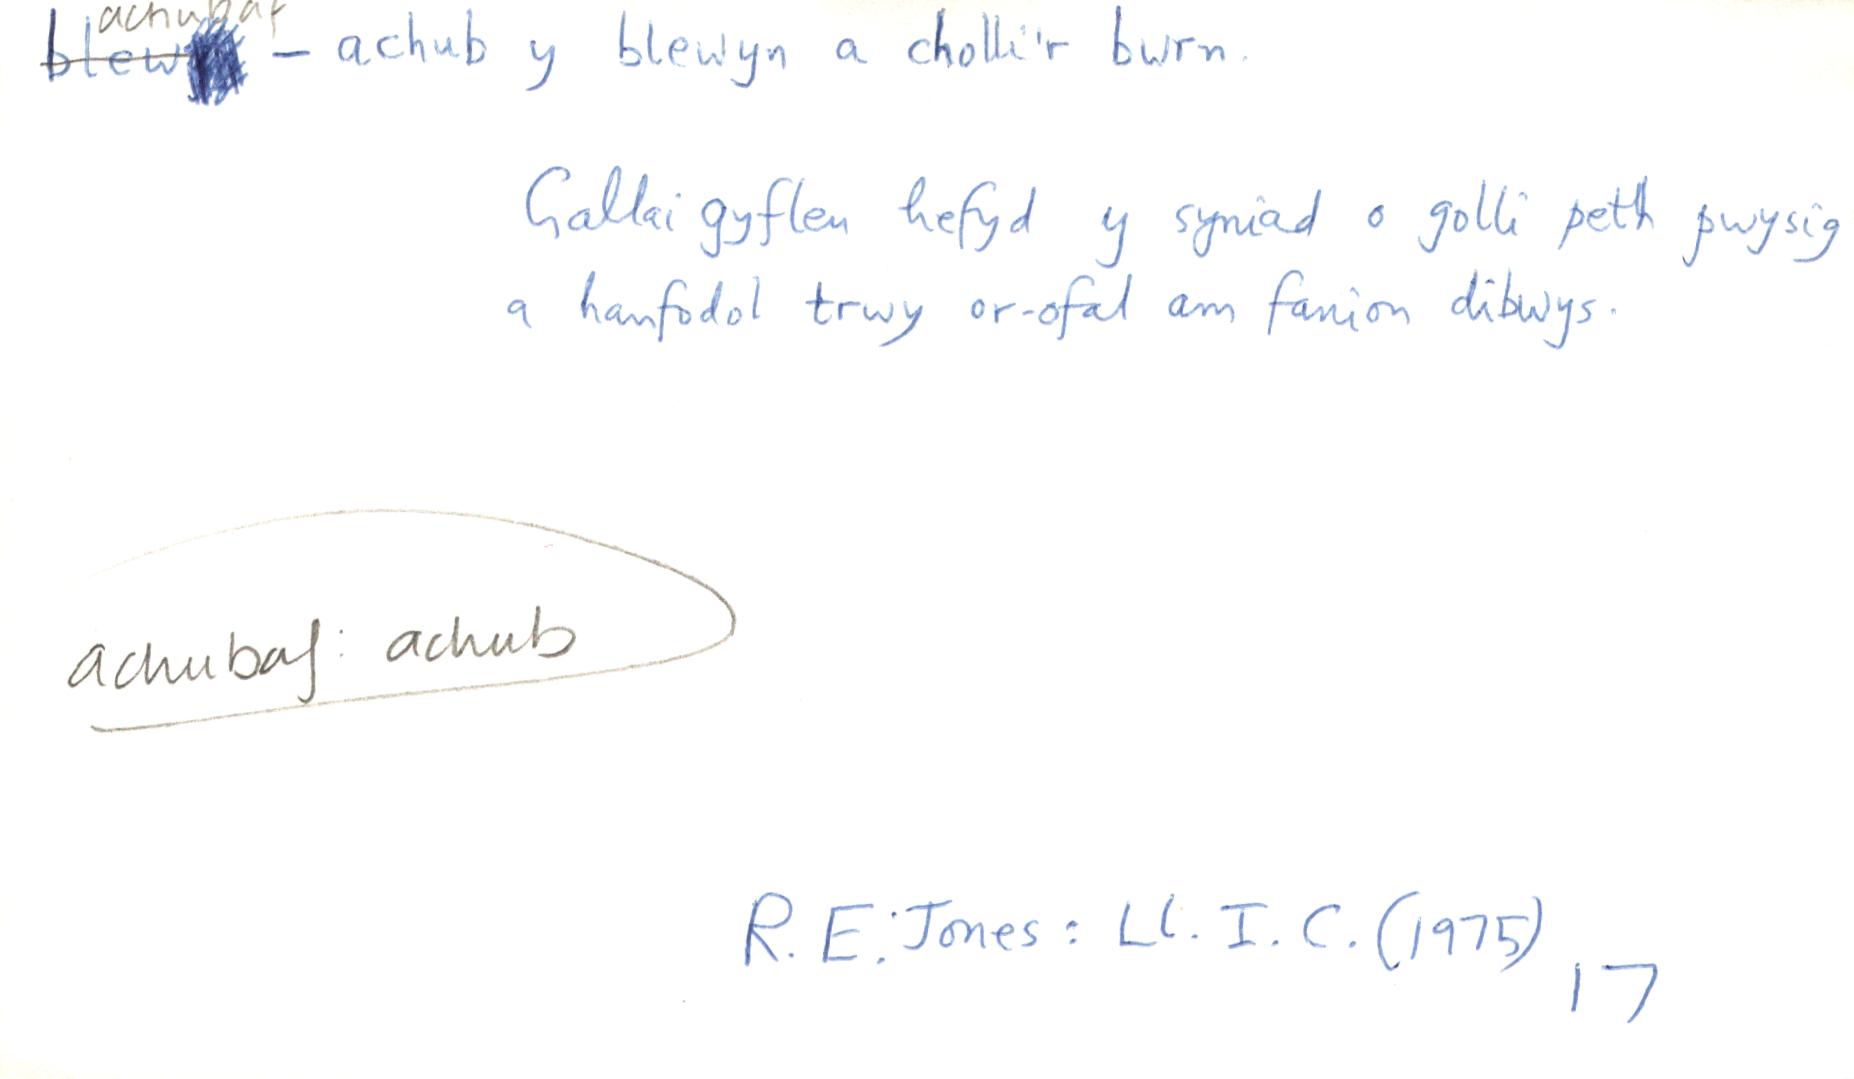 achubaf
blew – achub y blewyn a cholli'r bwrn.
Gallai gyfleu hefyd y syniad o golli peth pwysig
a hanfodol trwy or-ofal am fanion dibwys.
achubaf: achub
R. E. Jones: Ll. I. C. (1975)
17